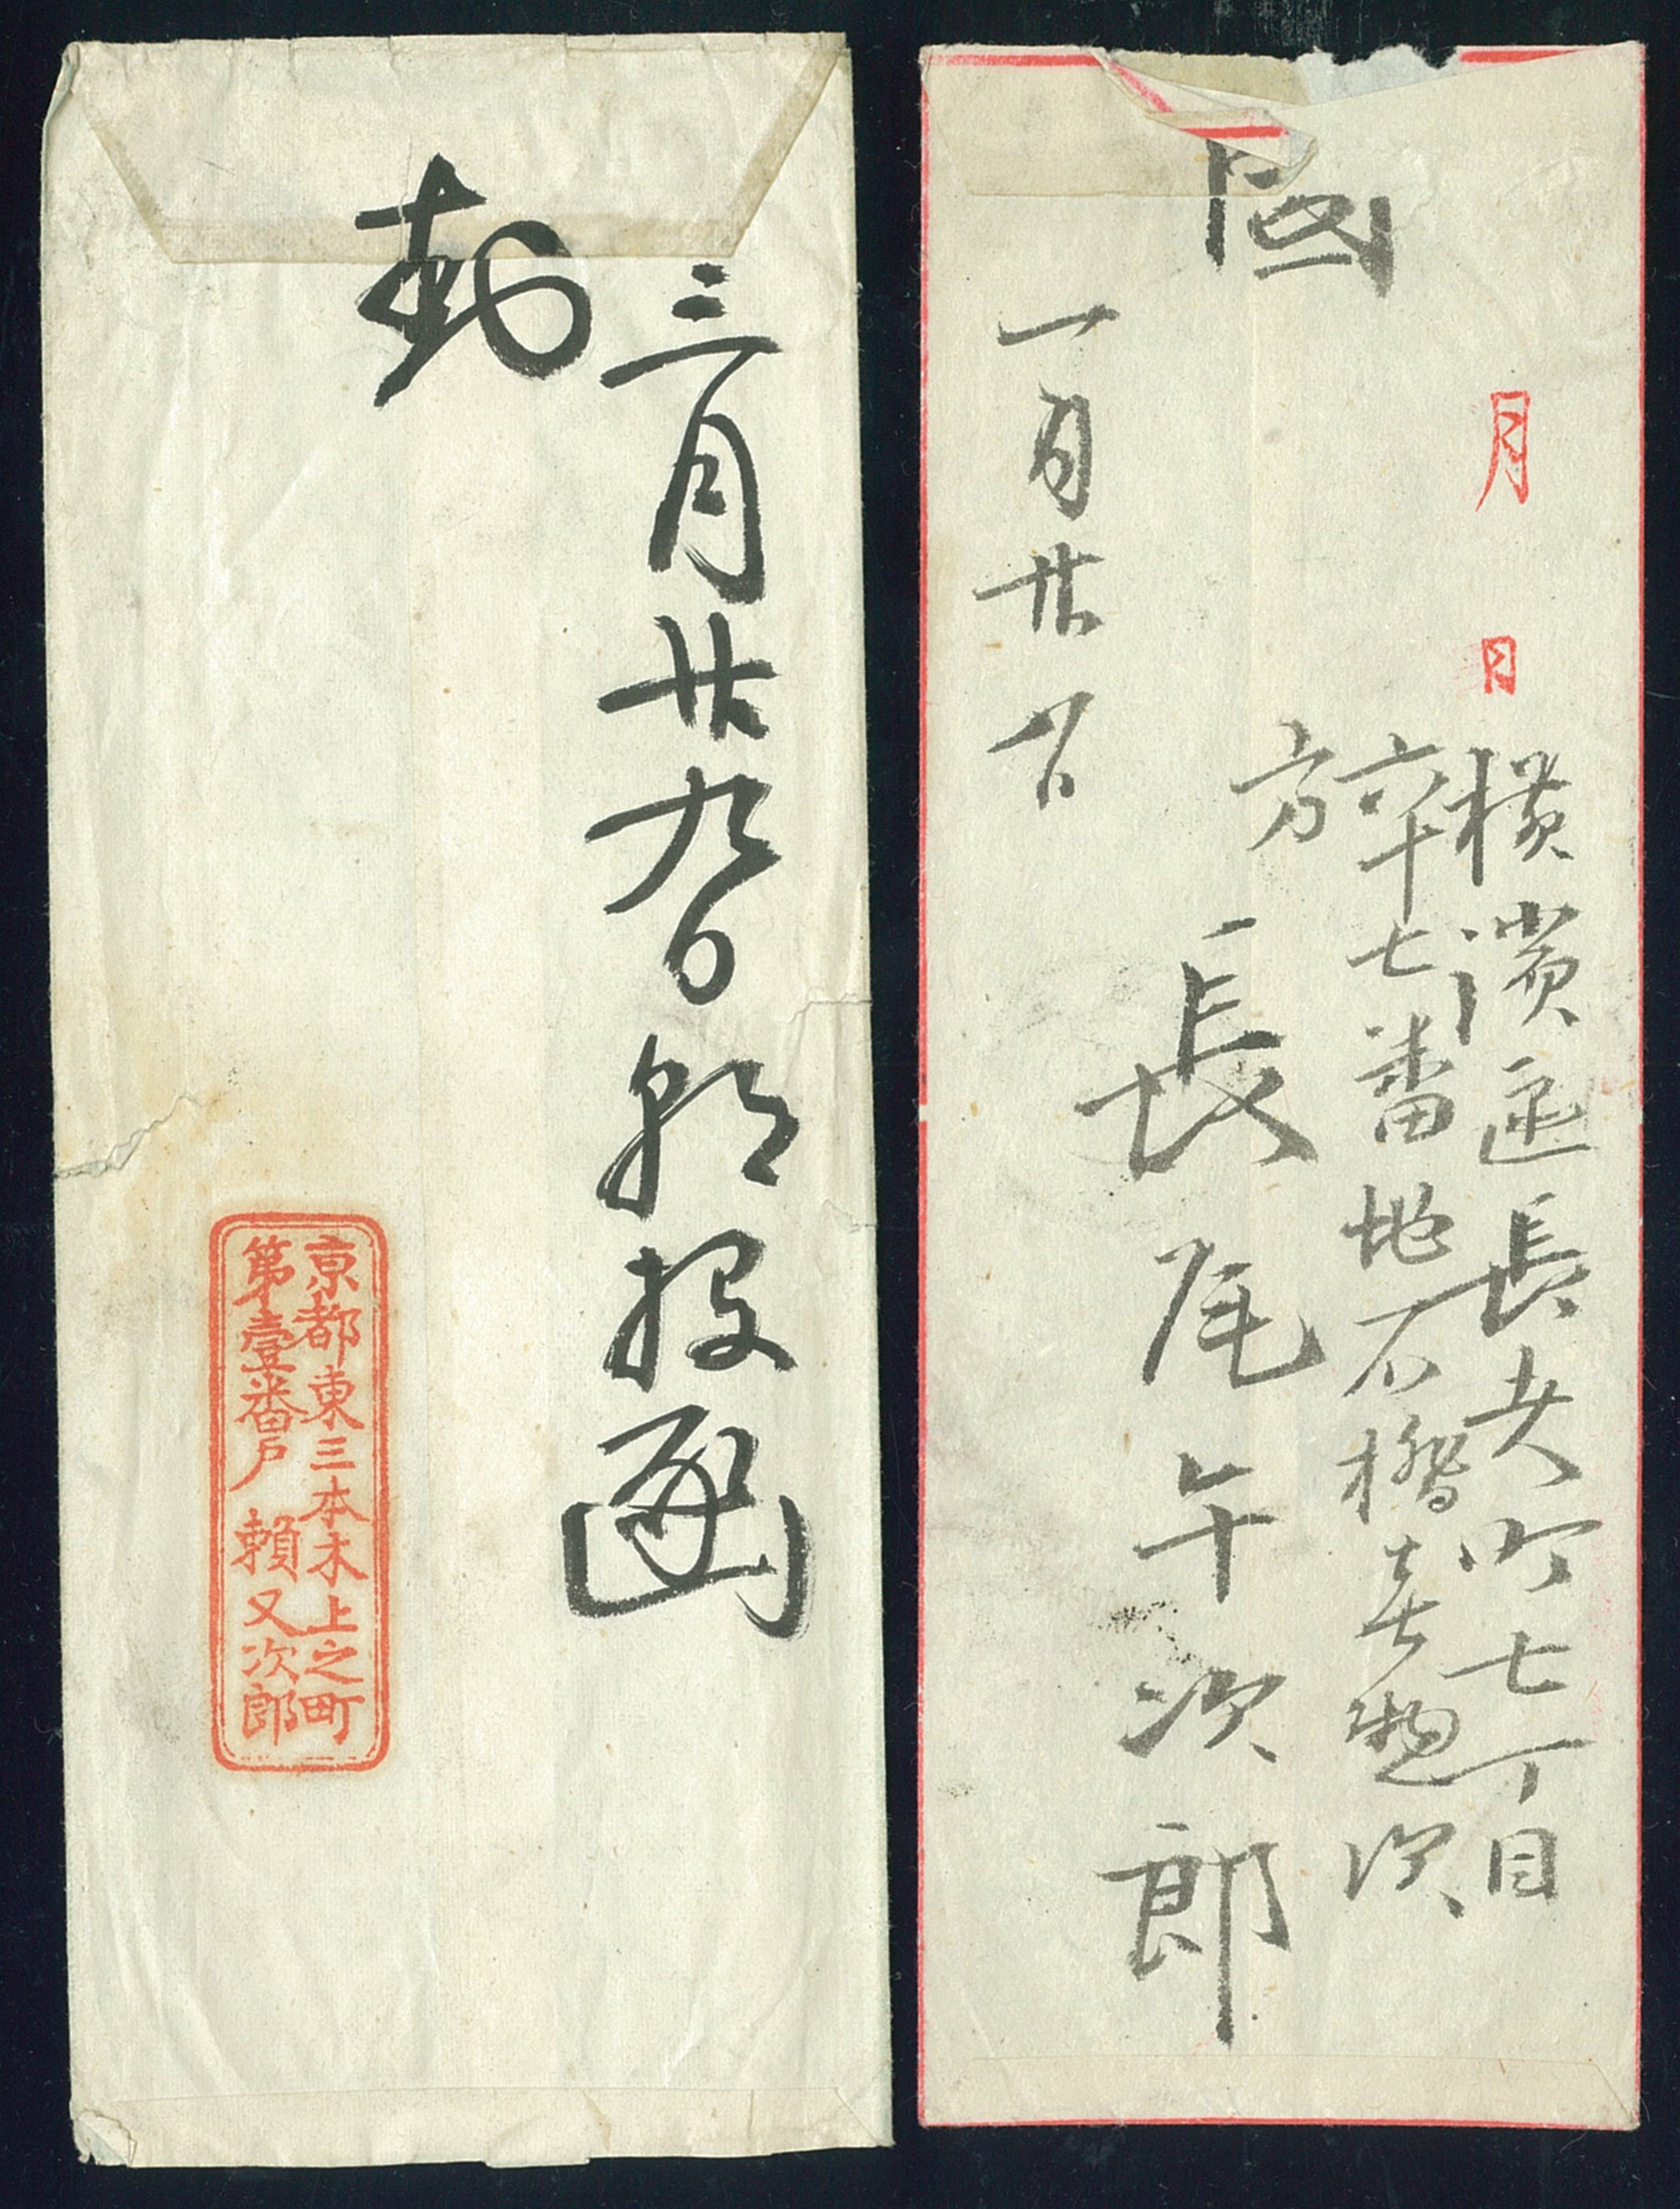 封
三月廿九日朝投函
京都東三本木上之町
第壹番戸 賴又次郎
月 日
横濱區長者町七丁目
六十七番地石橋喜惣次
方
長尾午次郎
一月廿日